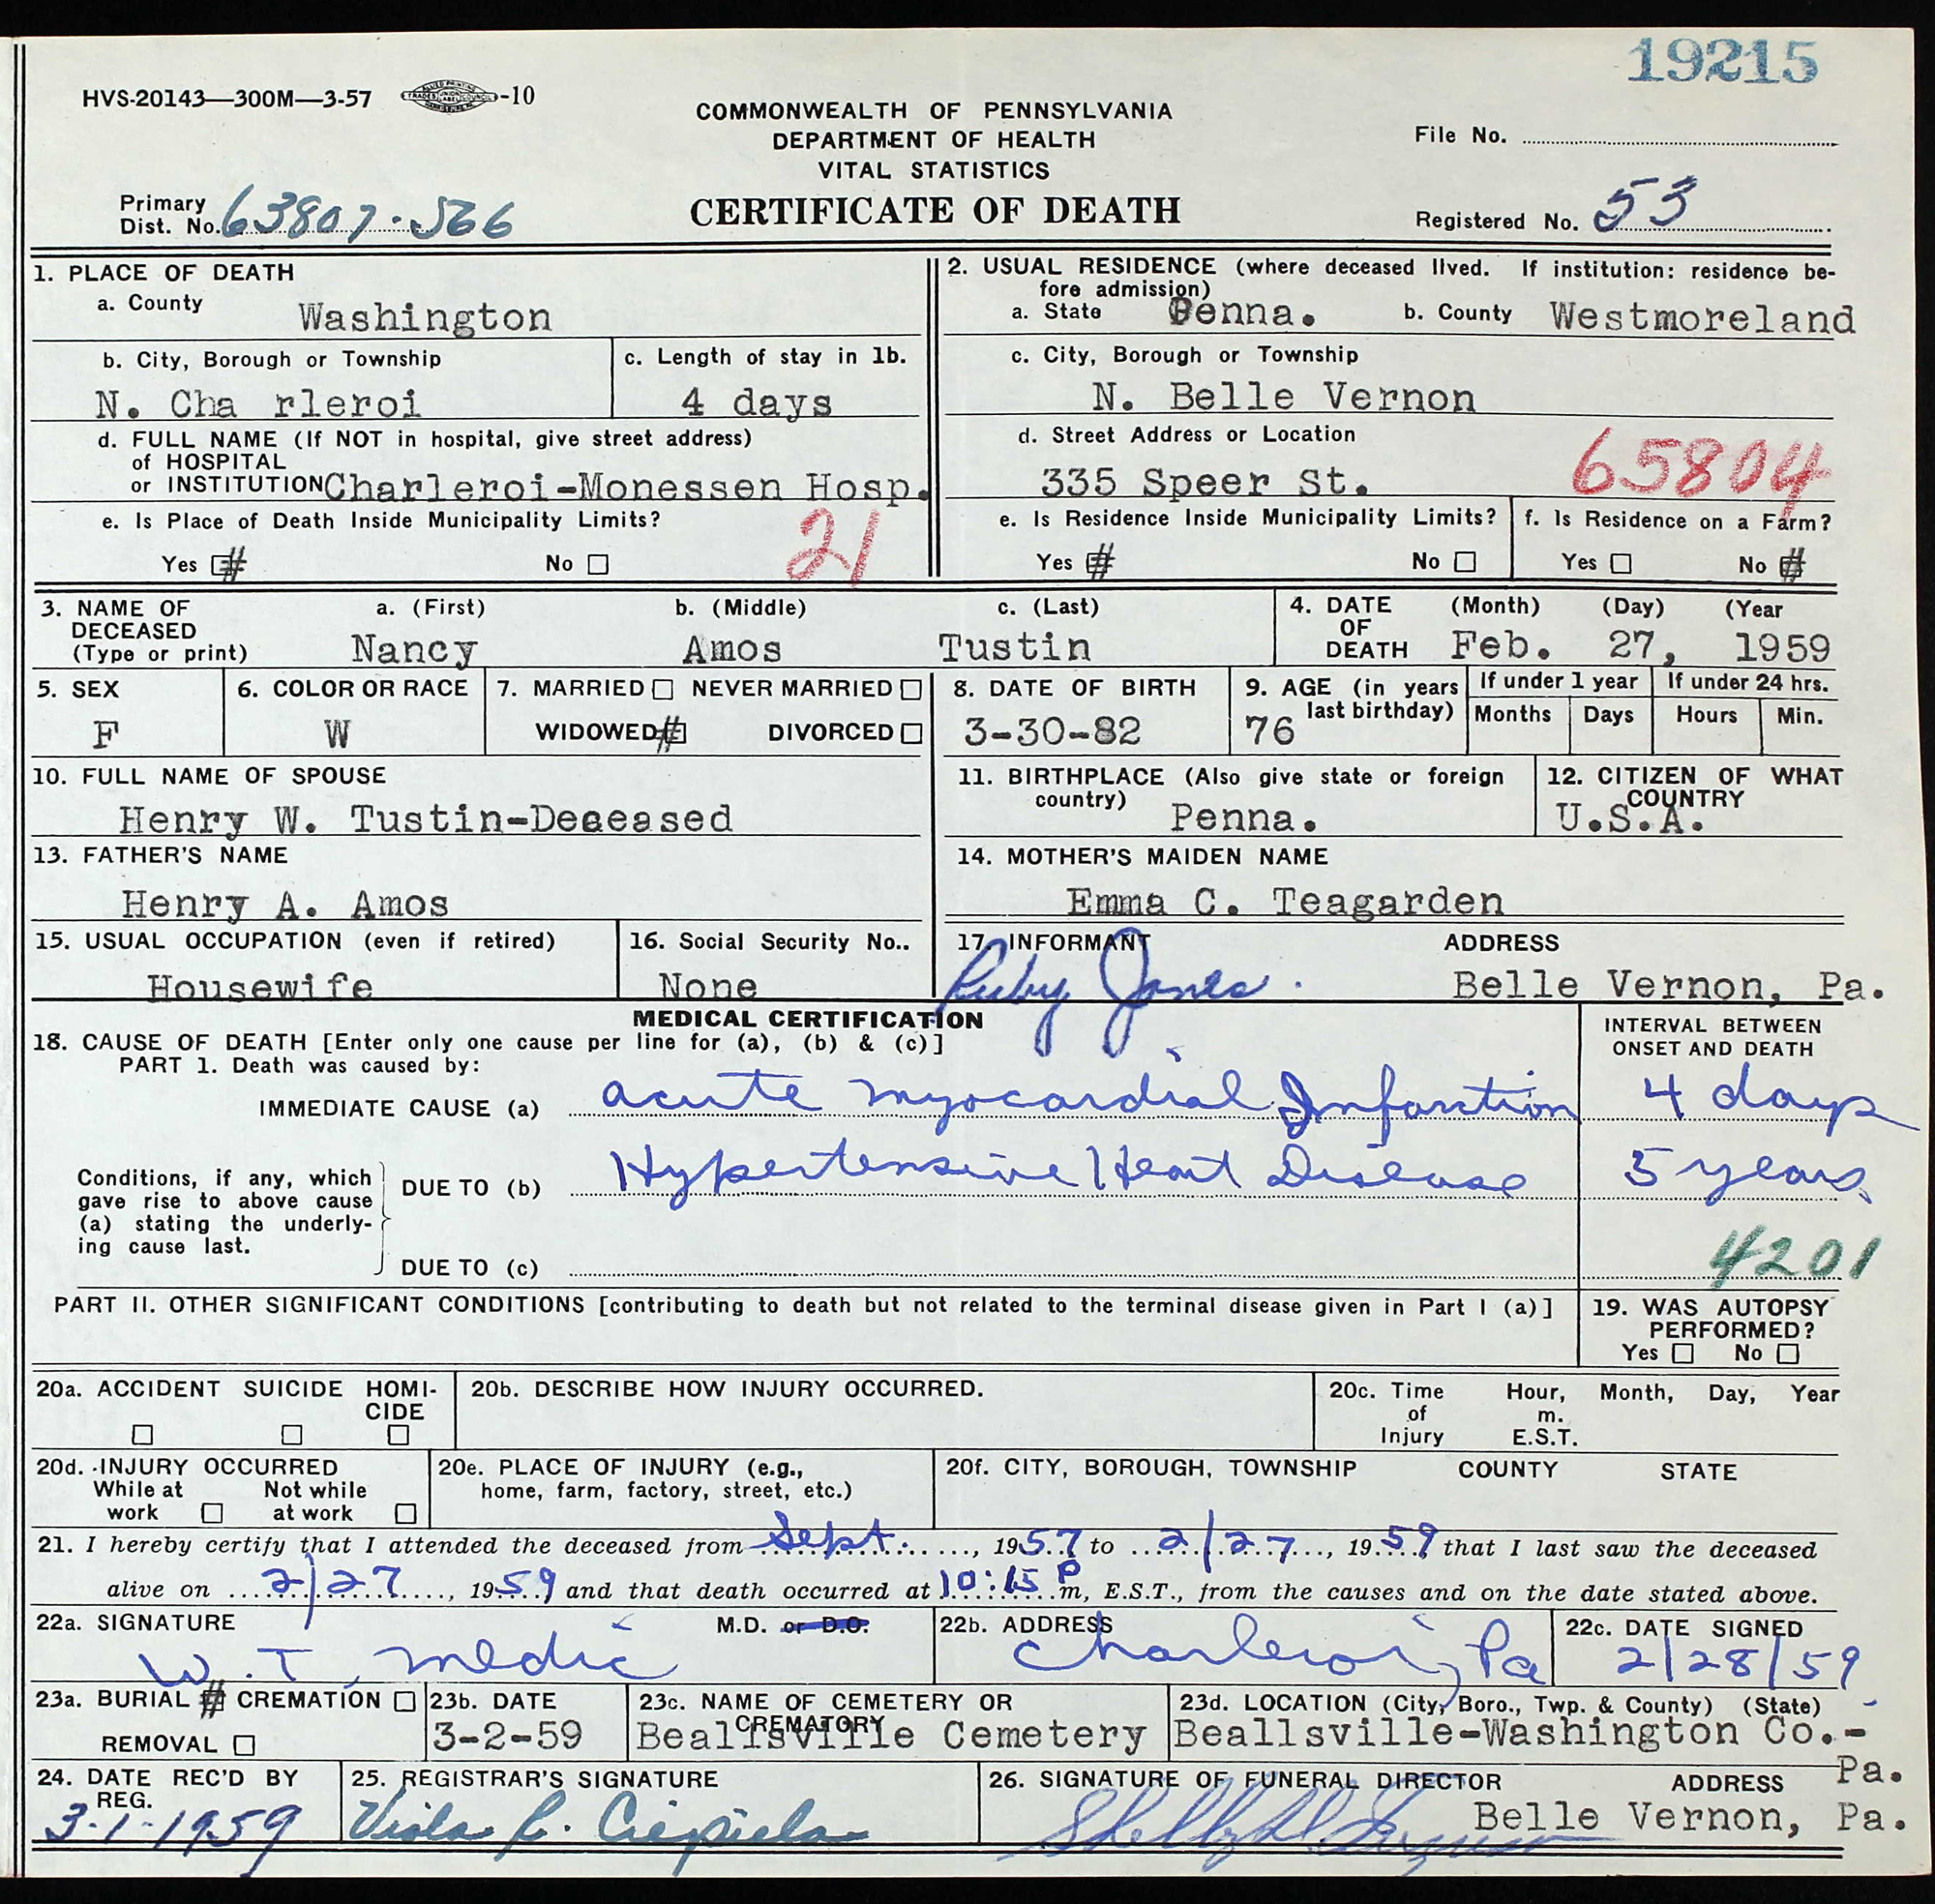 19215
HVS-20143—300M—3-57 -10
COMMONWEALTH OF PENNSYLVANIA
DEPARTMENT OF HEALTH
VITAL STATISTICS
CERTIFICATE OF DEATH
File No.
Primary Dist. No. 63807-566
Registered No. 53
1. PLACE OF DEATH
a. County Washington
b. City, Borough or Township
N. Cha rleroi
c. Length of stay in 1b.
4 days
d. FULL NAME (If NOT in hospital, give street address)
of HOSPITAL
or INSTITUTION Charleroi-Monessen Hosp.
e. Is Place of Death Inside Municipality Limits?
Yes # No
21
2. USUAL RESIDENCE (where deceased lived. If institution: residence be-
fore admission)
a. State Penna. b. County Westmoreland
c. City, Borough or Township
N. Belle Vernon
d. Street Address or Location
335 Speer St.
65804
e. Is Residence Inside Municipality Limits?
Yes # No
f. Is Residence on a Farm?
Yes No #
3. NAME OF DECEASED (Type or print)
a. (First) b. (Middle) c. (Last)
Nancy Amos Tustin
4. DATE OF DEATH (Month) (Day) (Year
Feb. 27, 1959
5. SEX
F
6. COLOR OR RACE
W
7. MARRIED NEVER MARRIED
WIDOWED # DIVORCED
8. DATE OF BIRTH
3-30-82
9. AGE (in years last birthday)
76
If under 1 year
Months Days
If under 24 hrs.
Hours Min.
10. FULL NAME OF SPOUSE
Henry W. Tustin-Deceased
11. BIRTHPLACE (Also give state or foreign
country)
Penna.
12. CITIZEN OF WHAT
COUNTRY
U.S.A.
13. FATHER'S NAME
Henry A. Amos
14. MOTHER'S MAIDEN NAME
Emma C. Teagarden
15. USUAL OCCUPATION (even if retired)
Housewife
16. Social Security No..
None
17. INFORMANT ADDRESS
Ruby Jones. Belle Vernon, Pa.
MEDICAL CERTIFICATION
18. CAUSE OF DEATH [Enter only one cause per line for (a), (b) & (c)]
PART 1. Death was caused by:
INTERVAL BETWEEN
ONSET AND DEATH
IMMEDIATE CAUSE (a) acute myocardial Infarction 4 days
Conditions, if any, which
gave rise to above cause
(a) stating the underly-
ing cause last.
DUE TO (b) Hypertensive Heart Disease 5 years
4201
DUE TO (c)
PART II. OTHER SIGNIFICANT CONDITIONS [contributing to death but not related to the terminal disease given in Part I (a)]
19. WAS AUTOPSY
PERFORMED?
Yes No
20a. ACCIDENT SUICIDE HOMI-
CIDE
20b. DESCRIBE HOW INJURY OCCURRED.
20c. Time of Injury Hour, Month, Day, Year
m.
E.S.T.
20d. INJURY OCCURRED
While at work Not while at work
20e. PLACE OF INJURY (e.g.,
home, farm, factory, street, etc.)
20f. CITY, BOROUGH, TOWNSHIP COUNTY STATE
21. I hereby certify that I attended the deceased from Sept., 1957 to 2/27, 1959 that I last saw the deceased
alive on 2/27, 1959 and that death occurred at 10:15 P m, E.S.T., from the causes and on the date stated above.
22a. SIGNATURE M.D. or D.O.
W. T. Medic
22b. ADDRESS
Charleroi, Pa
22c. DATE SIGNED
2/28/59
23a. BURIAL # CREMATION
REMOVAL
23b. DATE
3-2-59
23c. NAME OF CEMETERY OR
CREMATORY
Beallsville Cemetery
23d. LOCATION (City, Boro., Twp. & County) (State)
Beallsville-Washington Co.-
Pa.
24. DATE REC'D BY
REG.
3-1-1959
25. REGISTRAR'S SIGNATURE
Viola C. Ciepiela
26. SIGNATURE OF FUNERAL DIRECTOR ADDRESS
Belle Vernon, Pa.